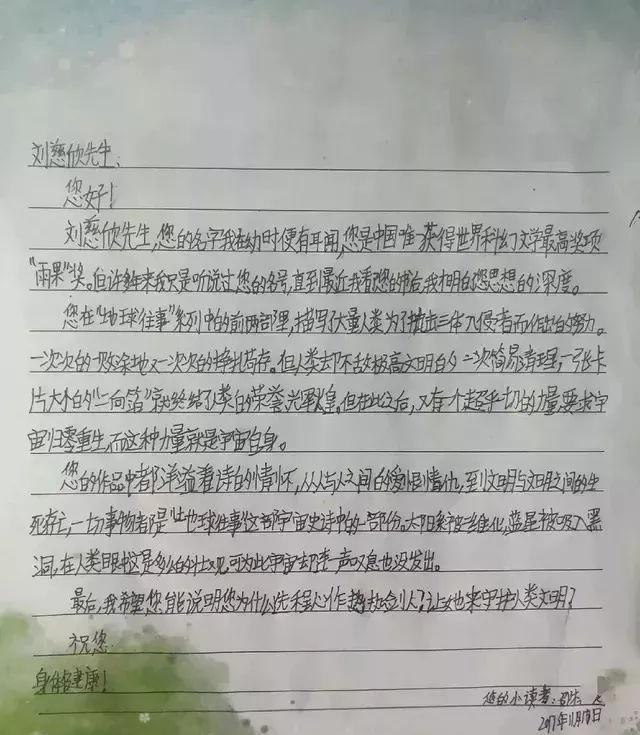 刘慈欣先生：
您好！
刘慈欣先生，您的名字我在幼时便有耳闻，您是中国唯一获得世界科幻文学最高奖项
“雨果”奖。但许多年来我只是听说过您的名号，直到最近我看您的书后，我才明白您思想的深度。
您在“地球往事”系列中的前两部里，描写了大量人类为了抗击三体入侵者而作出的努力。
一次次的一败涂地又一次次的挣扎苟存。但人类却不敌极高文明的一次简易清理，一张卡
片大小的“二向箔”就终结了人类的荣誉光辉煌。但在此之后，又有一个超乎一切的力量要求宇
宙归零重生，而这种力量就是宇宙自身。
您的作品中都洋溢着诗的情怀，从人与人之间的爱恨情仇，到文明与文明之间的生
死存亡，一切事物都是“地球往事”这部宇宙史诗中的一部份。太阳系被二维化，蓝星被吸入黑
洞，在人类眼中这是多么的壮观，可为此宇宙却连一声叹息也没发出。
最后，我希望您能说明您为什么选程心作为执剑人？让她来守护人类文明？
祝您
身体健康！
您的小读者：
2017年11月 日